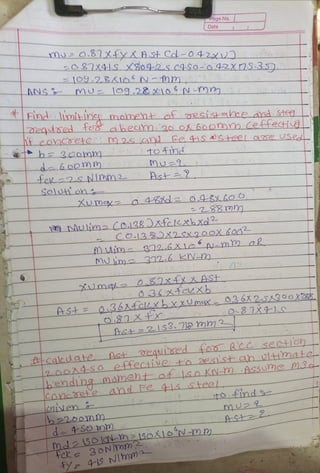 Page No.
Date
Mu = 0.87 x fy x Ast (d - 0.42 xu)
= 0.87 x 415 x 804.25 (450 - 0.42 x 175.35)
= 109.28 x 10⁶ N-mm
ANS:- Mu = 109.28 x 10⁶ N-mm
* Find limiting moment of resistance and steel
required for a beam 30 ox 600mm (effective)
if concrete M25 and Fe 415 steel are used
b = 300mm To find
d = 600mm Mu = ?
fck = 25 N/mm2 Ast = ?
Solution:
Xumax = 0.48xd = 0.48x600
= 288mm
Mulim = (0.138) x fck x b x d²
= (0.138) x 25 x 300 x 600²
Mulim = 372.6 x 10⁶ N-mm OR
Mulim = 372.6 kN.m
Xumax = 0.87 x fy x Ast
0.36 x fck x b
Ast = 0.36 x fck x b x xumax = 0.36 x 25 x 300 x 288
0.87 x fy 0.87 x 415
Ast = 2153.718 mm2
* calcdate Ast required for RCC section
200x450 effective to resist an ultimate
bending moment of 150 KN-m. Assume M30
concrete and Fe 415 steel
Given: to find:
b = 200mm Mu = ?
d = 450mm Ast = ?
Md = 150 kN-m = 150 x 10⁶ N-mm
fck = 30 N/mm2
fy = 415 N/mm2